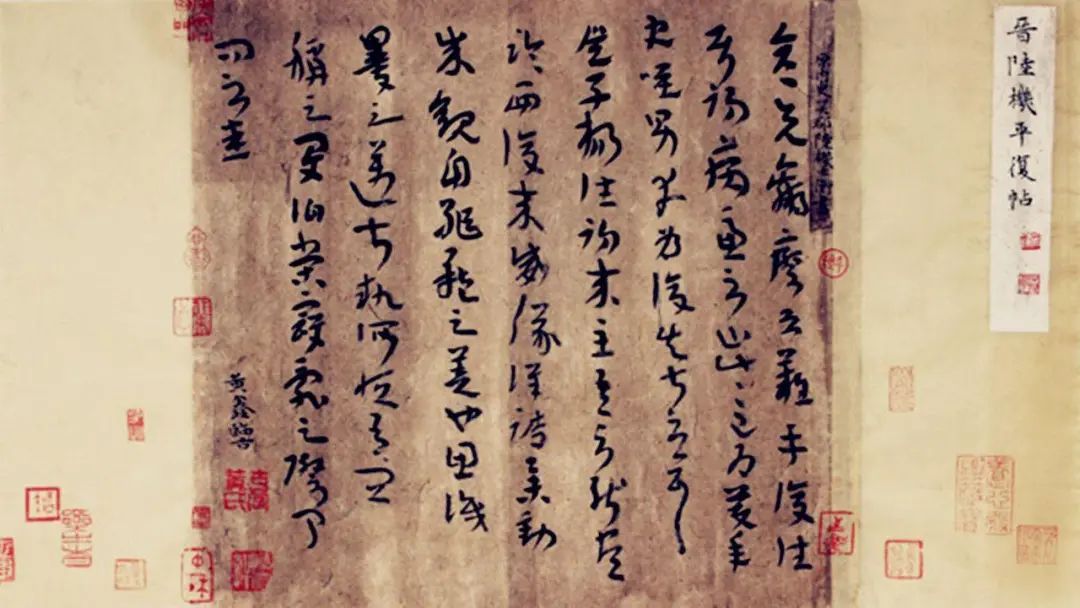 晉陸機平復帖
彦先羸瘵恐難平復往
屬初病慮不止此此已為慶承
使唯男幸為復失前憂耳
吳子楊往初來主吾不能盡
臨西復來威儀詳跱舉動
成觀自軀體之美也思識
量之邁前執所恒有宜
稱之夏伯榮寇亂之際聞
問不悉
黄鑫臨古